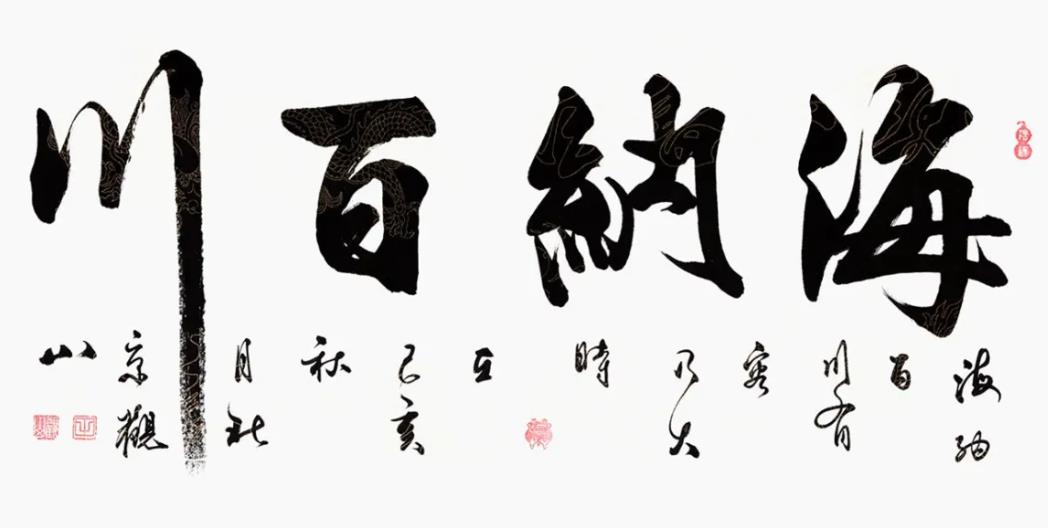 海納百川
海納
百
川有
容
乃大
時
在
己亥
秋
月於
京觀
山